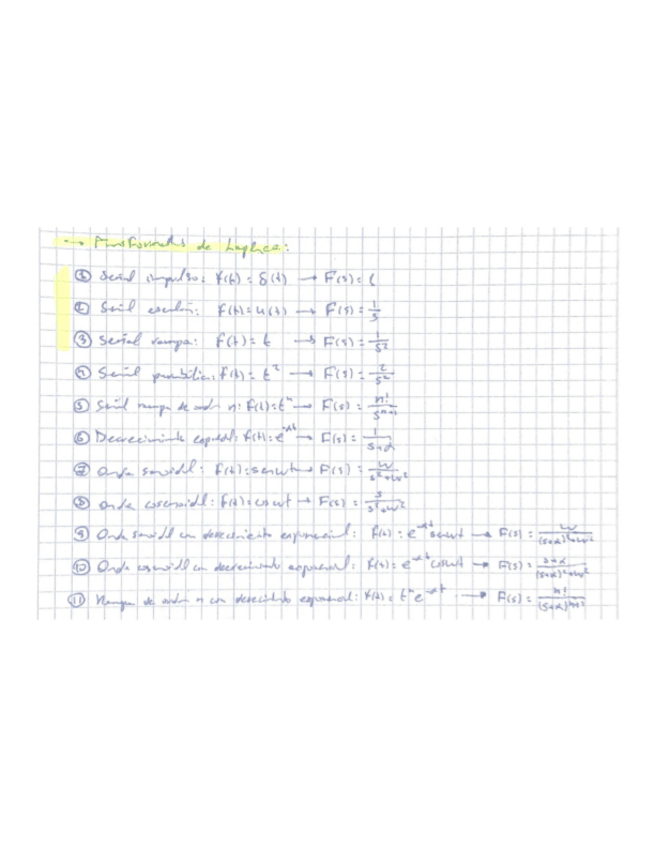 → Transformadas de Laplace:
① Señal impulso: f(t) = δ(t) → F(s) = 1
② Señal escalón: f(t) = u(t) → F(s) = 1/s
③ Señal rampa: f(t) = t → F(s) = 1/s²
④ Señal parabólica: f(t) = t² → F(s) = 2/s²
⑤ Señal rampa de orden n: f(t) = tⁿ → F(s) = n!/sⁿ⁺¹
⑥ Decrecimiento exponencial: f(t) = e^-αt → F(s) = 1/(s+α)
⑦ Onda senoidal: f(t) = senωt → F(s) = ω/(s²+ω²)
⑧ Onda cosenoidal: f(t) = cosωt → F(s) = s/(s²+ω²)
⑨ Onda senoidal con decrecimiento exponencial: f(t) = e^-αt senωt → F(s) = ω/((s+α)²+ω²)
⑩ Onda cosenoidal con decrecimiento exponencial: f(t) = e^-αt cosωt → F(s) = (s+α)/((s+α)²+ω²)
⑪ Rampa de orden n con decrecimiento exponencial: f(t) = tⁿe^-αt → F(s) = n!/(s+α)ⁿ⁺¹